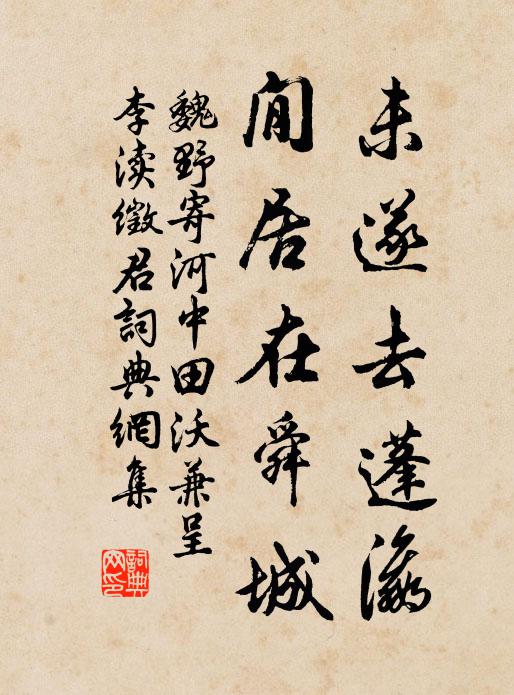 未遂去蓬瀛
閒居在舜城
魏野寄河中田沃兼呈
李渎徵君詞典網集
詞典網印